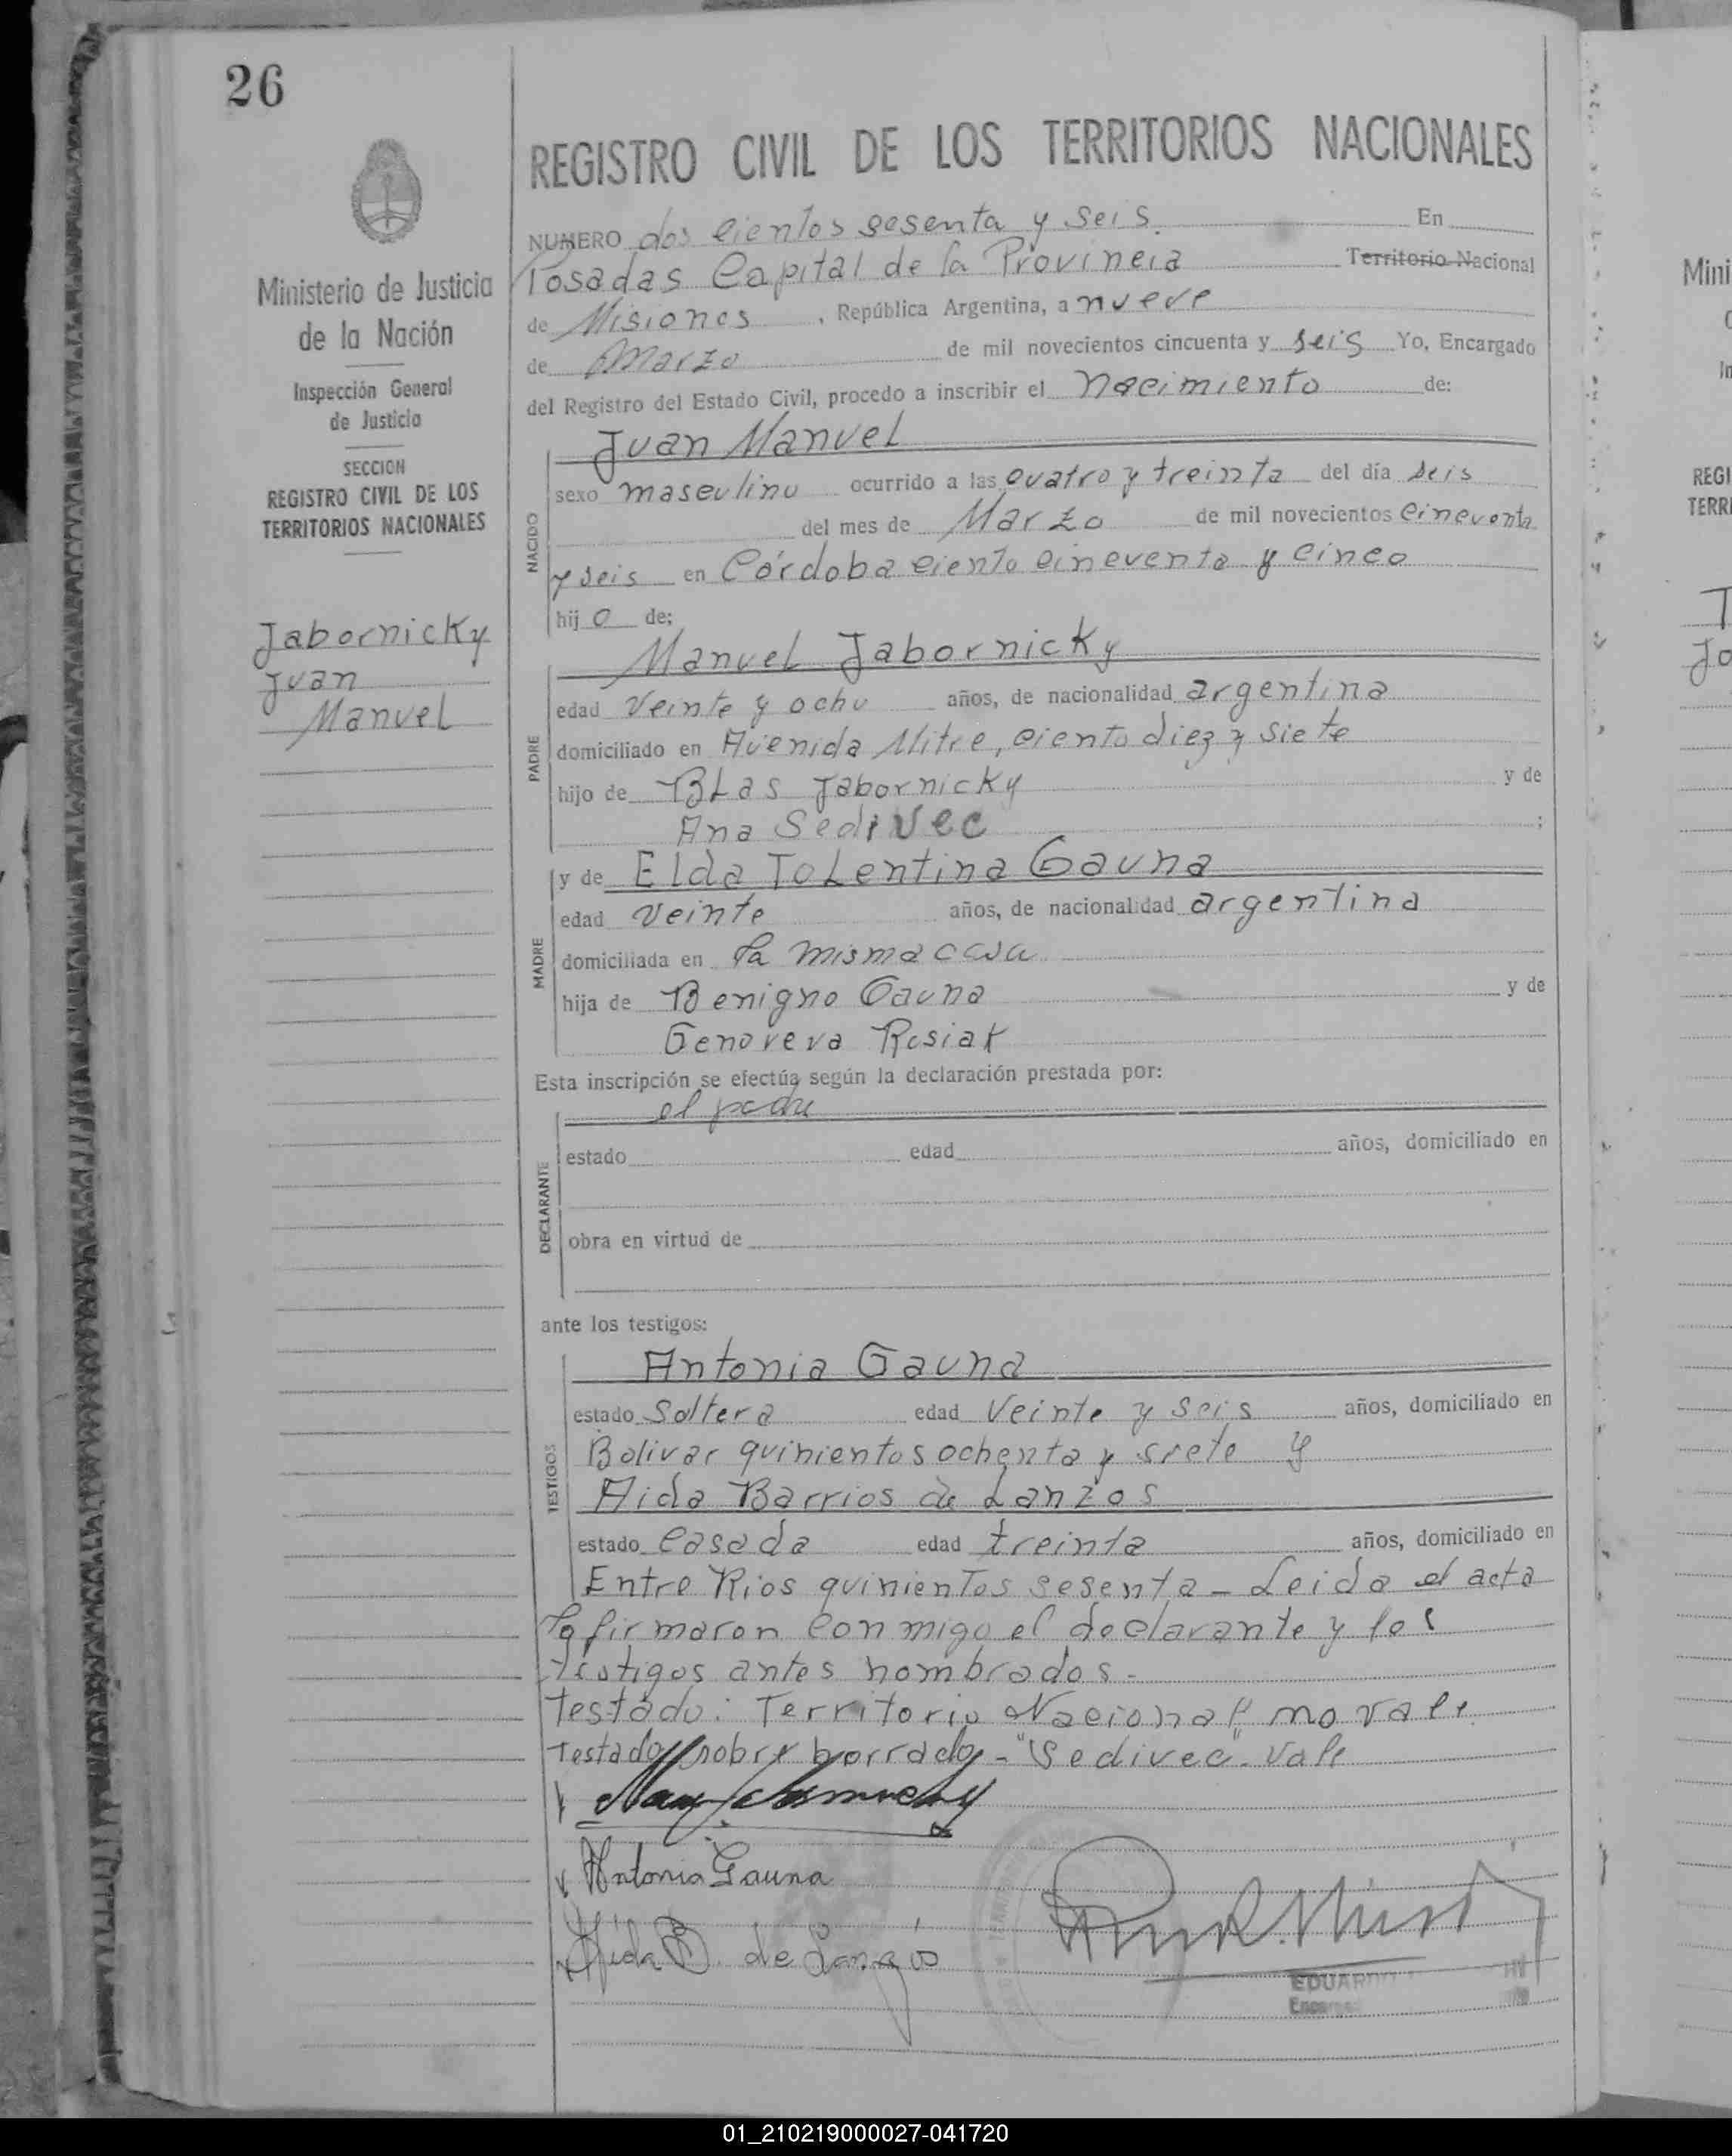 26
REGISTRO CIVIL DE LOS TERRITORIOS NACIONALES
NUMERO dos cientos sesenta y seis. En
Posadas Capital de la Provincia Territorio Nacional
de Misiones , República Argentina, a nueve
de Marzo de mil novecientos cincuenta y seis Yo, Encargado
del Registro del Estado Civil, procedo a inscribir el nacimiento de:
Juan Manuel
NACIDO
sexo masculino ocurrido a las cuatro y treinta del día seis
del mes de Marzo de mil novecientos cincuenta
y seis en Córdoba ciento cincuenta y cinco
hijo de;
Manuel Jabornicky
PADRE
edad veinte y ocho años, de nacionalidad argentina
domiciliado en Avenida Mitre, ciento diez y siete
hijo de BLas Jabornicky y de
Ana Sedivec ;
y de Elda ToLentina Gauna
MADRE
edad veinte años, de nacionalidad argentina
domiciliada en la misma casa
hija de Benigno Gauna y de
Genoveva Rosiak
Esta inscripción se efectúa según la declaración prestada por:
el padre
DECLARANTE
estado edad años, domiciliado en
obra en virtud de
ante los testigos:
Antonia Gauna
TESTIGOS
estado Soltera edad veinte y seis años, domiciliado en
Bolivar quinientos ochenta y siete y
Aida Barrios de Lanzos
estado casada edad treinta años, domiciliado en
Entre Rios quinientos sesenta - Leida el acta
la firmaron conmigo el declarante y los
testigos antes nombrados.-
Testado: Territorio Nacional" no vale
Testado sobre borrado - "Sedivec". Vale
Antonia Gauna
Aida B. de
EDUARDO
Ministerio de Justicia
de la Nación
Inspección General
de Justicia
SECCION
REGISTRO CIVIL DE LOS
TERRITORIOS NACIONALES
Jabornicky
Juan
Manuel
Mini
REGI
TERRI
01_210219000027-041720